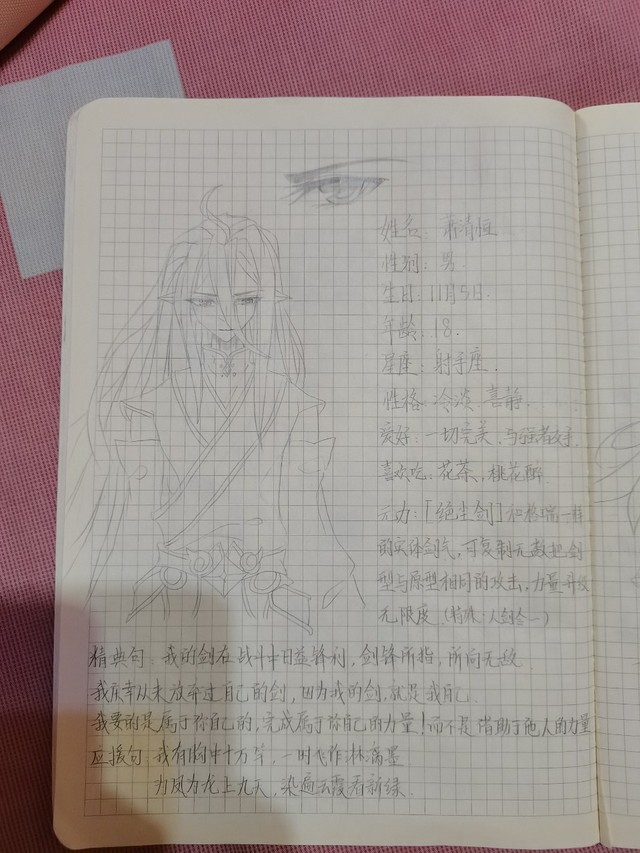 姓名：萧清恒
性别：男
生日：11月5日.
年龄：18.
星座：射手座.
性格：冷淡.喜静.
爱好：一切完美.与强者交手.
喜欢吃：花茶，桃花酥.
元力：「绝尘剑」和格瑞一样
的实体剑气，可复制无数把剑
型与原型相同的攻击，力量升级
无限度（特殊：人剑合一）
精典句：我的剑在战斗中日益锋利，剑锋所指，所向无敌.
我庆幸从未放弃过自己的剑，因为我的剑，就是我自己.
我要的是属于你自己的，完成属于你自己的力量！而不是借助于他人的力量
应援句：我有胸中十万字，一时飞作淋漓墨
为凤为龙上九天，染遍云霞看新绿.